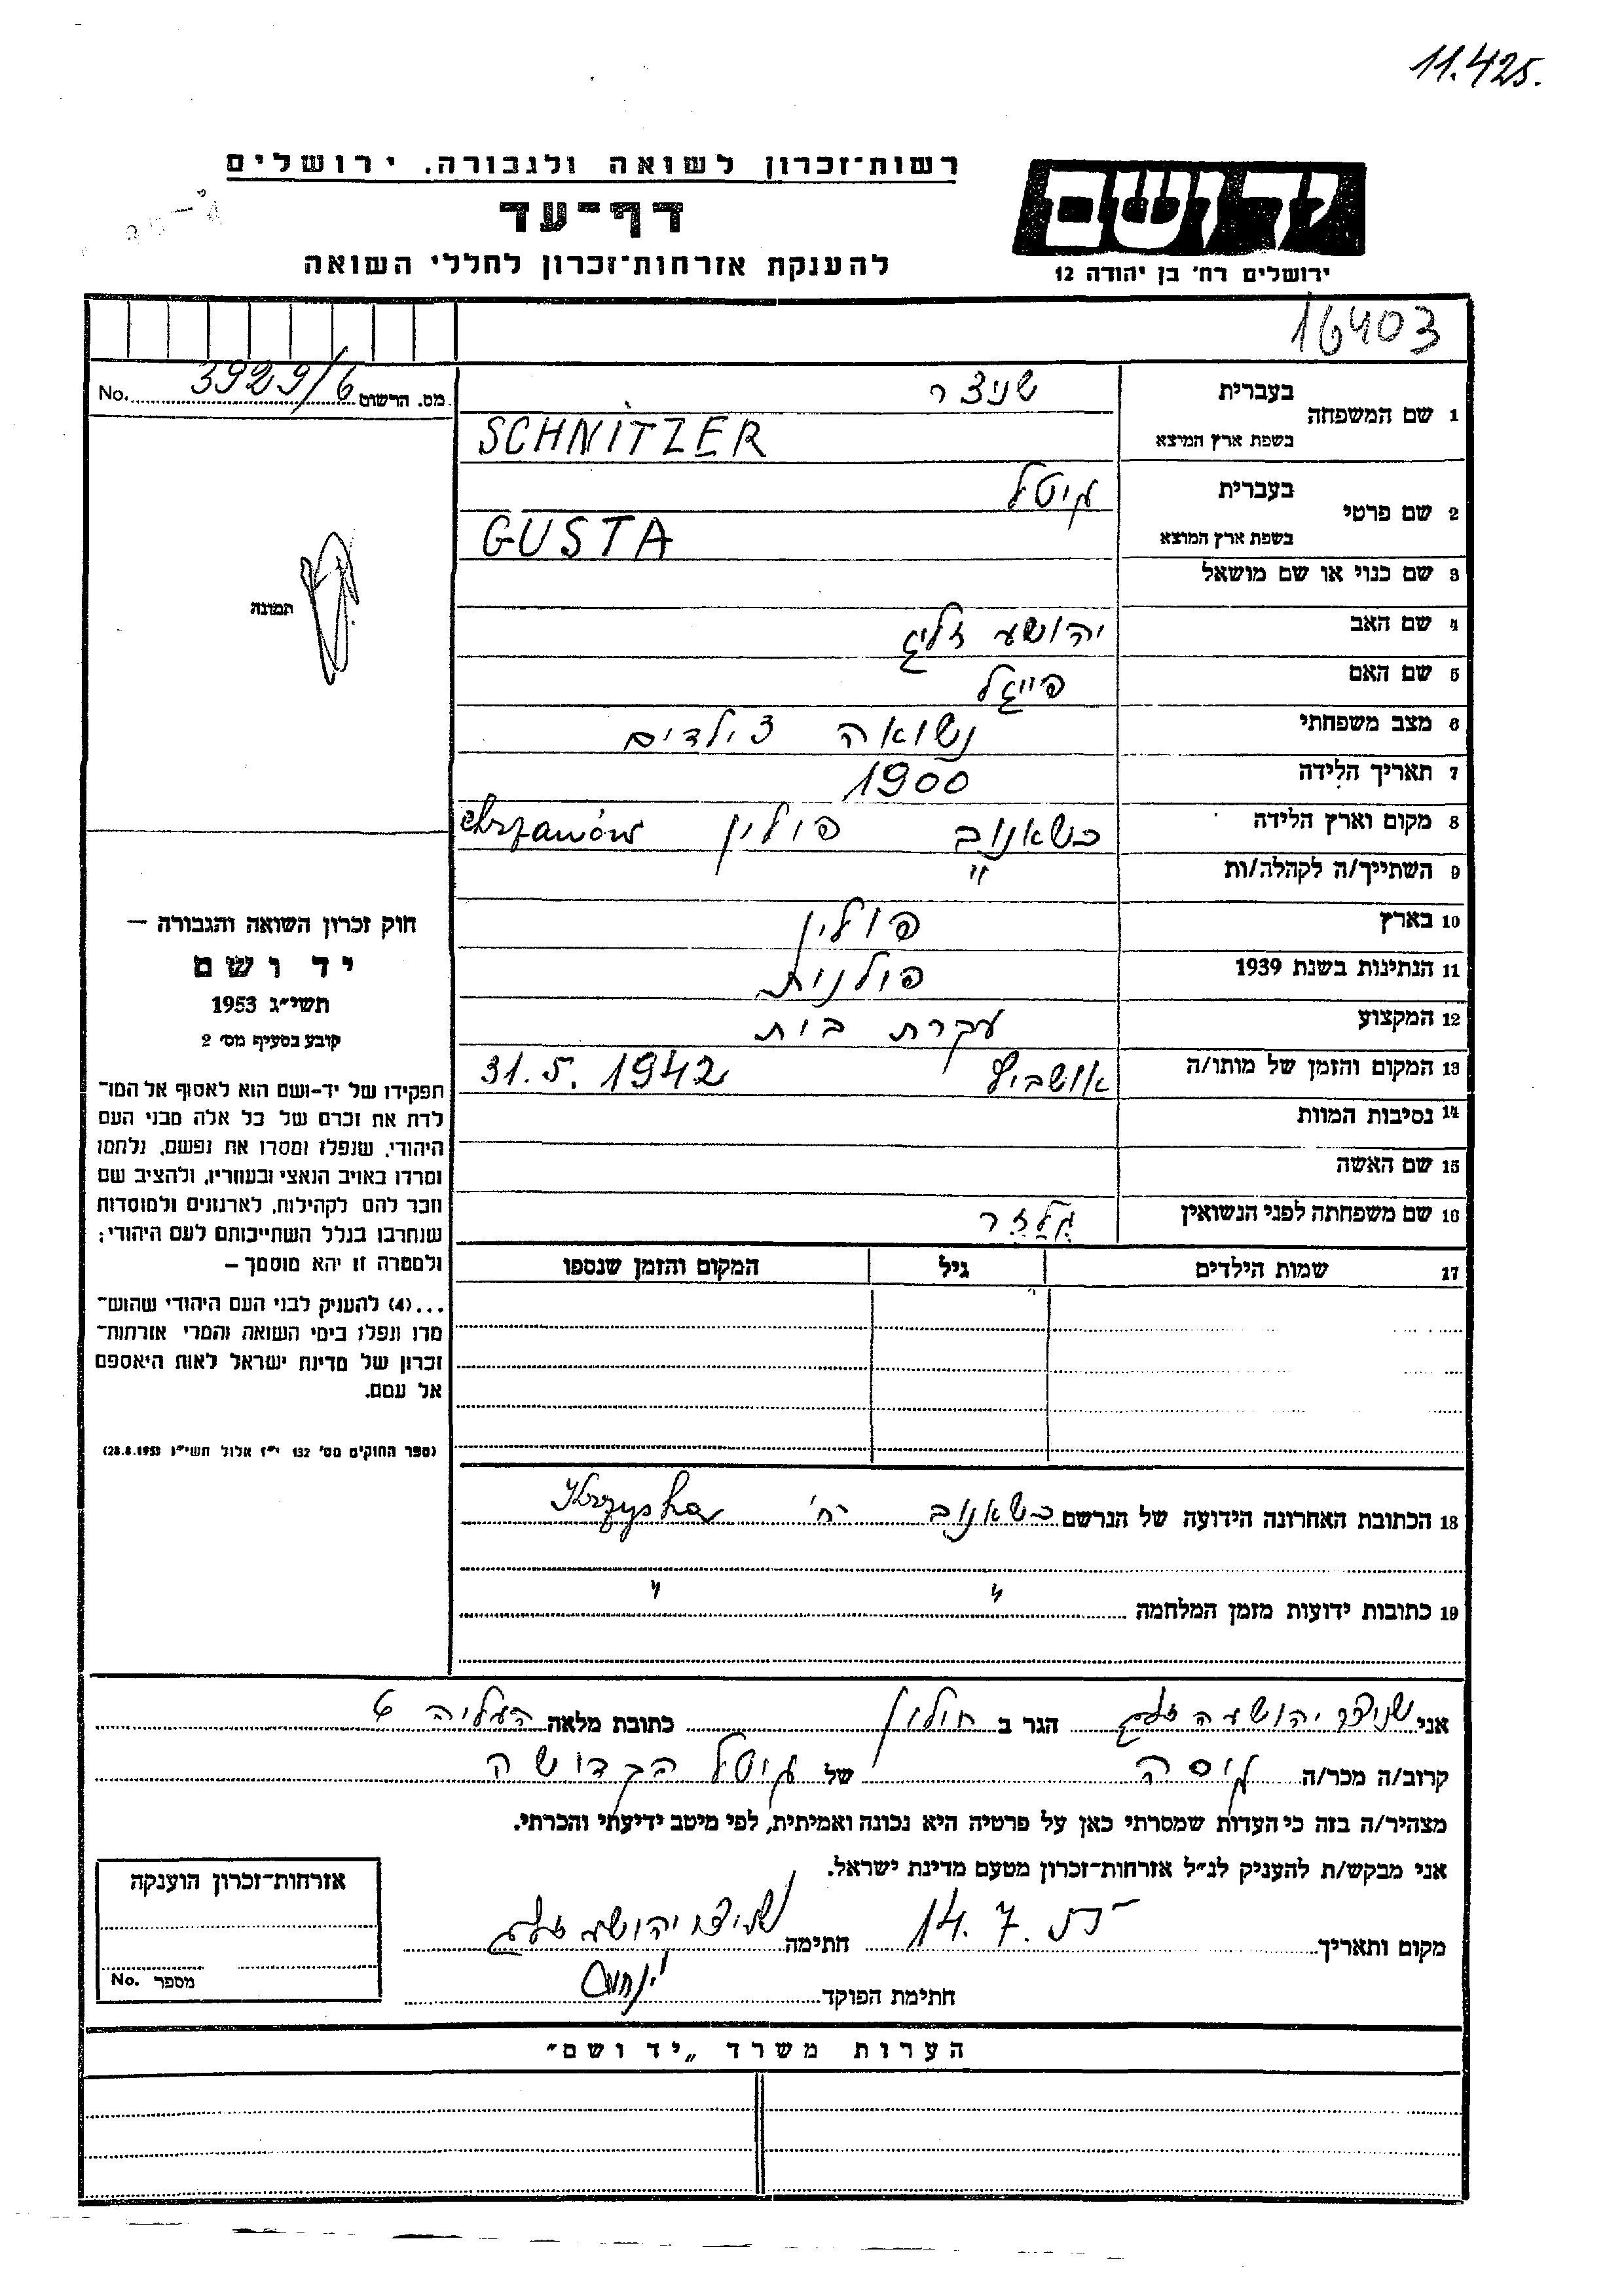 11.425.
רשות־זכרון לשואה ולגבורה, ירושלים
דף־עד
להענקת אזרחות־זכרון לחללי השואה
יד ושם
ירושלים רח' בן יהודה 12
16403
מס. הרשום 3929/6 No.
תמונה
1 שם המשפחה
בעברית שניצר
בשפת ארץ המיצא SCHNITZER
2 שם פרטי
בעברית גיטל
בשפת ארץ המוצא GUSTA
3 שם כנוי או שם מושאל
4 שם האב יהושע זליג
5 שם האם פייגל
6 מצב משפחתי נשואה 3 ילדים
7 תאריך הלידה 1900
8 מקום וארץ הלידה כשאנוב פולין Chrzanów
9 השתייך/ה לקהלה/ות "
10 בארץ פולין
11 הנתינות בשנת 1939 פולנית
12 המקצוע עקרת בית
13 המקום והזמן של מותו/ה אושביץ 31.5.1942
14 נסיבות המוות
15 שם האשה
16 שם משפחתה לפני הנשואין גלזר
17 שמות הילדים גיל המקום והזמן שנספו
18 הכתובת האחרונה הידועה של הנרשם כשאנוב רח'
19 כתובות ידועות מזמן המלחמה " "
חוק זכרון השואה והגבורה —
יד ושם
תשי״ג 1953
קובע בסעיף מס' 2
תפקידו של יד-ושם הוא לאסוף אל המו־
לדת את זכרם של כל אלה מבני העם
היהודי, שנפלו ומסרו את נפשם, נלחמו
ומרדו באויב הנאצי ובעוזריו, ולהציב שם
וזכר להם לקהילות, לארגונים ולמוסדות
שנחרבו בגלל השתייכותם לעם היהודי;
ולמטרה זו יהא מוסמך —
...(4) להעניק לבני העם היהודי שהוש־
מדו ונפלו בימי השואה והמרי אזרחות־
זכרון של מדינת ישראל לאות היאספם
אל עמם.
(ספר החוקים מס' 132 י״ז אלול תשי״ג 28.8.1953)
אני שניצר יהושעה זליג הגר ב חולון כתובת מלאה העליה 6
קרוב/ה מכר/ה גיסה של גיטל הקדושה
מצהיר/ה בזה כי העדות שמסרתי כאן על פרטיה היא נכונה ואמיתית, לפי מיטב ידיעתי והכרתי.
אני מבקש/ת להעניק לנ״ל אזרחות־זכרון מטעם מדינת ישראל.
מקום ותאריך 14.7. חתימה שניצר יהושע זליג
חתימת הפוקד
אזרחות־זכרון הוענקה
מספר No.
הערות משרד „יד ושם״